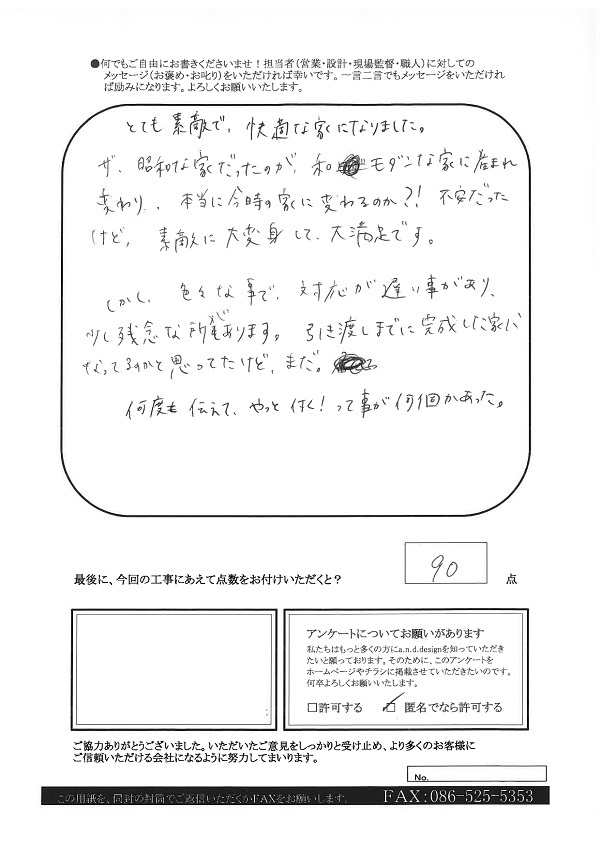 ●何でもご自由にお書きくださいませ！担当者(営業・設計・現場監督・職人)に対しての
メッセージ(お褒め・お叱り)をいただければ幸いです。一言二言でもメッセージをいただけれ
ば励みになります。よろしくお願いいたします。
とても素敵で、快適な家になりました。
ザ、昭和な家だったのが、和モダンな家に産まれ
変わり、本当に今時の家に変わるのか?! 不安だった
けど、素敵に大変身して、大満足です。
しかし、色々な事で、対応が遅い事があり、
少し残念な所もあります。引き渡しまでに完成した家に
なってるのかと思ってたけど、まだ。
何度も伝えて、やっと付く！って事が何個かあった。
最後に、今回の工事にあえて点数をお付けいただくと？
90 点
アンケートについてお願いがあります
私たちはもっと多くの方にa.n.d.designを知っていただき
たいと願っております。そのために、このアンケートを
ホームページやチラシに掲載させていただきたいのです。
何卒よろしくお願いいたします。
□許可する ☑ 匿名でなら許可する
ご協力ありがとうございました。いただいたご意見をしっかりと受け止め、より多くのお客様に
ご信頼いただける会社になるように努力してまいります。
No.
この用紙を、同封の封筒でご返信いただくかFAXをお願いします。 FAX:086-525-5353